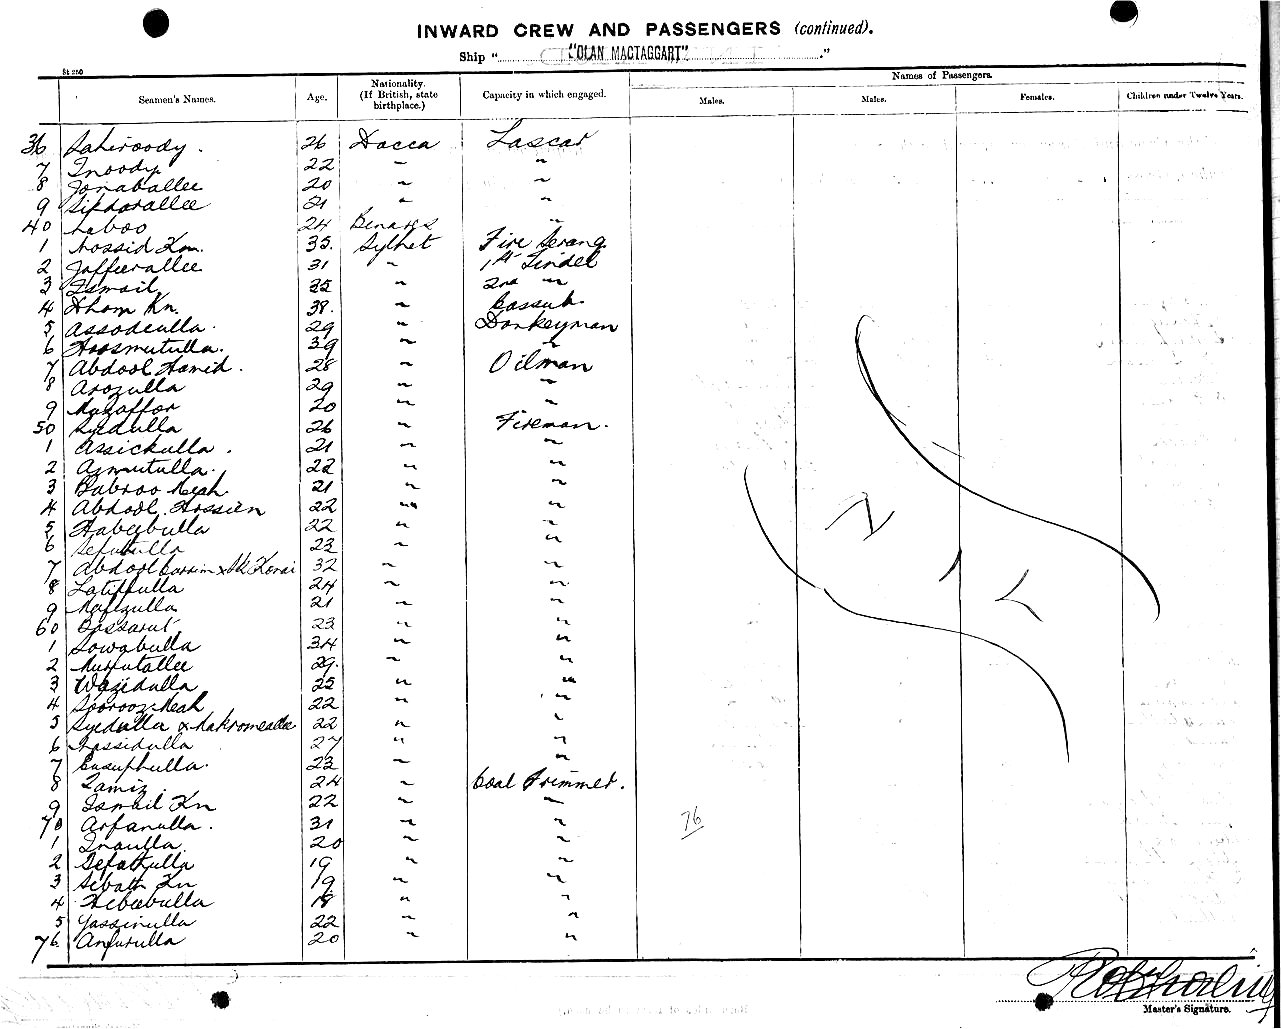 INWARD CREW AND PASSENGERS (continued).
Ship "CLAN MACTAGGART"
St 280
Seamen's Names. Age. Nationality. (If British, state birthplace.) Capacity in which engaged. Names of Passengers.
Males. Males. Females. Children under Twelve Years.
36 Sahiroody . 26 Dacca Lascar
7 Inoody 22 " "
8 Jonaballee 20 " "
9 21 " "
40 24 Benares "
1 Kn. 35. Sylhet Fire Serang
2 Jafferallee 31 " 1st Tindel
3 Ismail 35 " 2nd "
4 Kn. 38. " Cassub.
5 Assodeulla . 29 " Donkeyman
6 Hoosmutulla. 39 " "
7 Abdool Hamid . 28 " Oilman
8 Arozulla 29 " "
9 Mozaffor 20 " "
50 Syedulla 26 " Fireman.
1 Assickulla . 21 " "
2 Azmutulla . 22 " "
3 Babroo Meah 21 " "
4 Abdool Hossien 22 " "
5 Habibulla 22 " "
6 Sefutulla 23 " "
7 Abdool Cassim x 32 " "
8 Latiffulla 24 " "
9 Mafizulla 21 " "
60 23 " "
1 Sowabulla 34 " "
2 29. " "
3 Wazidulla 25 " "
4 Meah 22 " "
5 Syedulla x 22 " "
6 27 " "
7 Eusuphulla. 23 " "
8 Tamiz . 24 " Coal Trimmer.
9 Ismail Kn 22 " "
70 Arfanulla . 31 " "
1 Inaulla 20 " "
2 Sefatulla 19 " "
3 Kn 19 " "
4 Hebeebulla 18 " "
5 Yassinulla 22 " "
76 20 " "
NIL
76
Master's Signature.